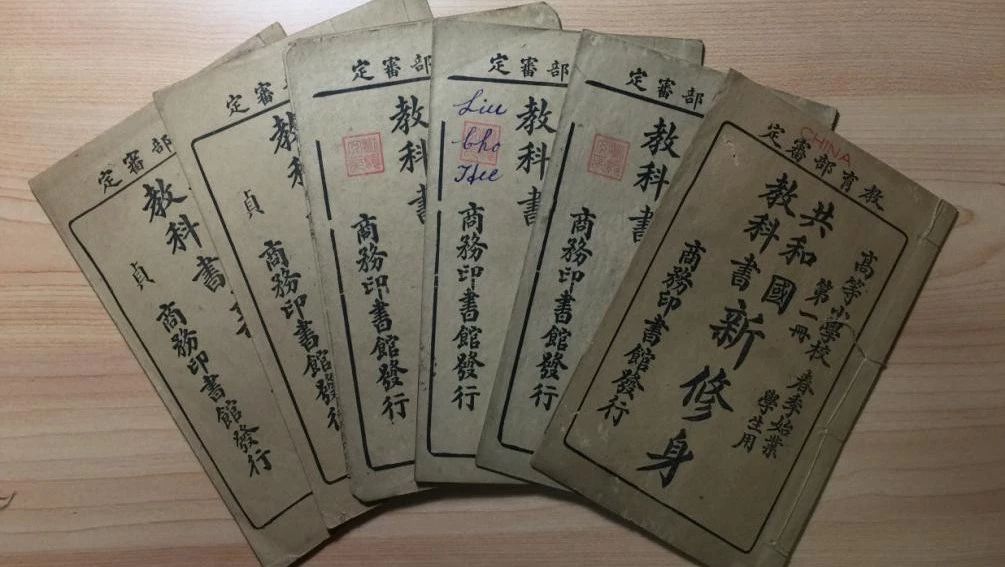 部審定
教科書
貞
商務印書館發行
部審定
教
貞
商務印書館發行
部審定
教科書
商務印書館發行
部審定
教科書
Liu
商務印書館發行
部審定
教科書
商務印書館發行
CHINA
教育部審定
高等小學校
春季始業
學生用
第一冊
共和國
教科書
新修身
商務印書館發行